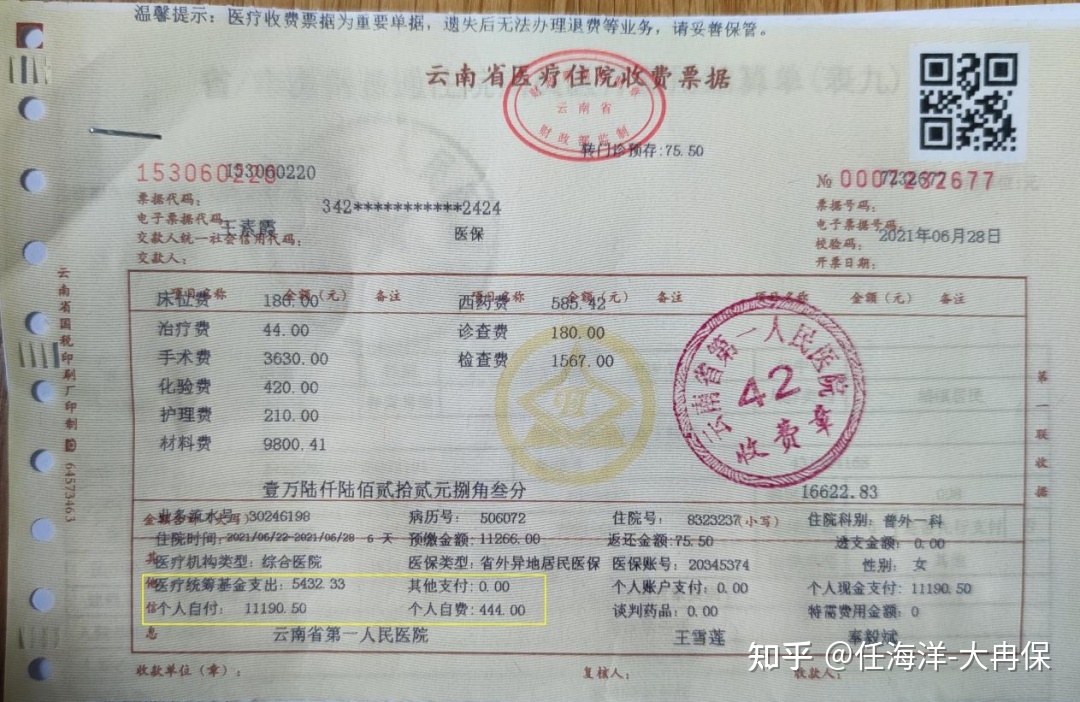 温馨提示：医疗收费票据为重要单据，遗失后无法办理退费等业务，请妥善保管。
云南省医疗住院收费票据
云南省
财政部监制
转门诊预存:75.50
153060220
153060220
№ 0007232677
7232677
票据代码：
票据号码：
342***********2424
电子票据代码
电子票据号码：
王素霞
交款人统一社会信用代码：
医保
校验码：
2021年06月28日
交款人：
开票日期：
项目名称 金额（元） 备注 项目名称 金额（元） 备注 项目名称 金额（元） 备注
床位费 180.00 西药费 585.42
治疗费 44.00 诊查费 180.00
手术费 3630.00 检查费 1567.00
化验费 420.00
护理费 210.00
材料费 9800.41
云南省第一人民医院
42
收费章
云南省国税印刷厂印制
64573463
第一联 收据
壹万陆仟陆佰贰拾贰元捌角叁分 16622.83
金额合计（大写） （小写）
业务流水号：30246198 病历号： 506072 住院号： 8323237 住院科别：普外一科
住院时间：2021/06/22-2021/06/28 6 天 预缴金额：11266.00 返还金额:75.50 透支金额: 0.00
其他信息
医疗机构类型：综合医院 医保类型：省外异地居民医保 医保账号：20345374 性别： 女
医疗统筹基金支出：5432.33 其他支付:0.00 个人账户支付: 0.00 个人现金支付: 11190.50
个人自付： 11190.50 个人自费:444.00 谈判药品：0.00 特需费用金额：0
云南省第一人民医院 王雪莲 秦毅斌
收款单位（章）： 复核人： 收款人：
知乎 @任海洋-大冉保